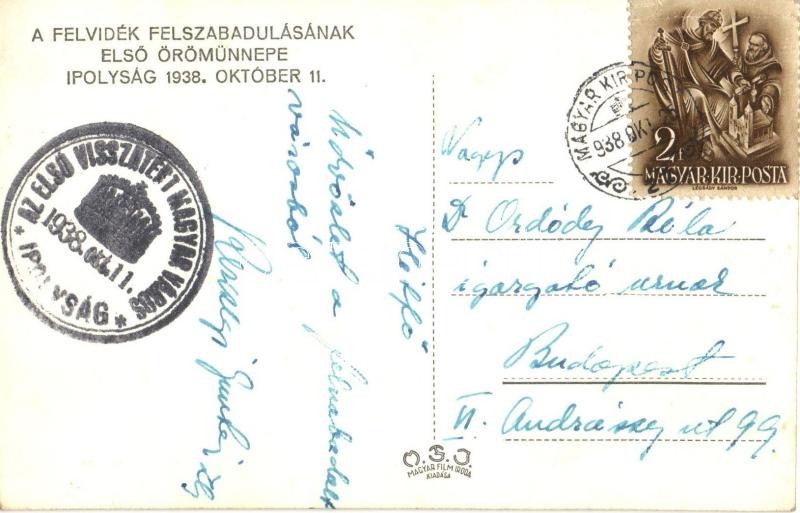 A FELVIDÉK FELSZABADULÁSÁNAK
ELSŐ ÖRÖMÜNNEPE
IPOLYSÁG 1938. OKTÓBER 11.
AZ ELSŐ VISSZATÉRT MAGYAR VÁROS
1938. OKT. 11.
* IPOLYSÁG *
Üdvözlet a felszabadult
városból
MAGYAR KIR. POSTA
938 OKT
2f
MAGYAR·KIR·POSTA
LÉGRÁDY SÁNDOR
Nagys
Dr Ordódy Béla
igazgató urnak
Budapest
VI. Andrássy ut 99.
M.F.I.
MAGYAR FILM IRODA
KIADÁSA